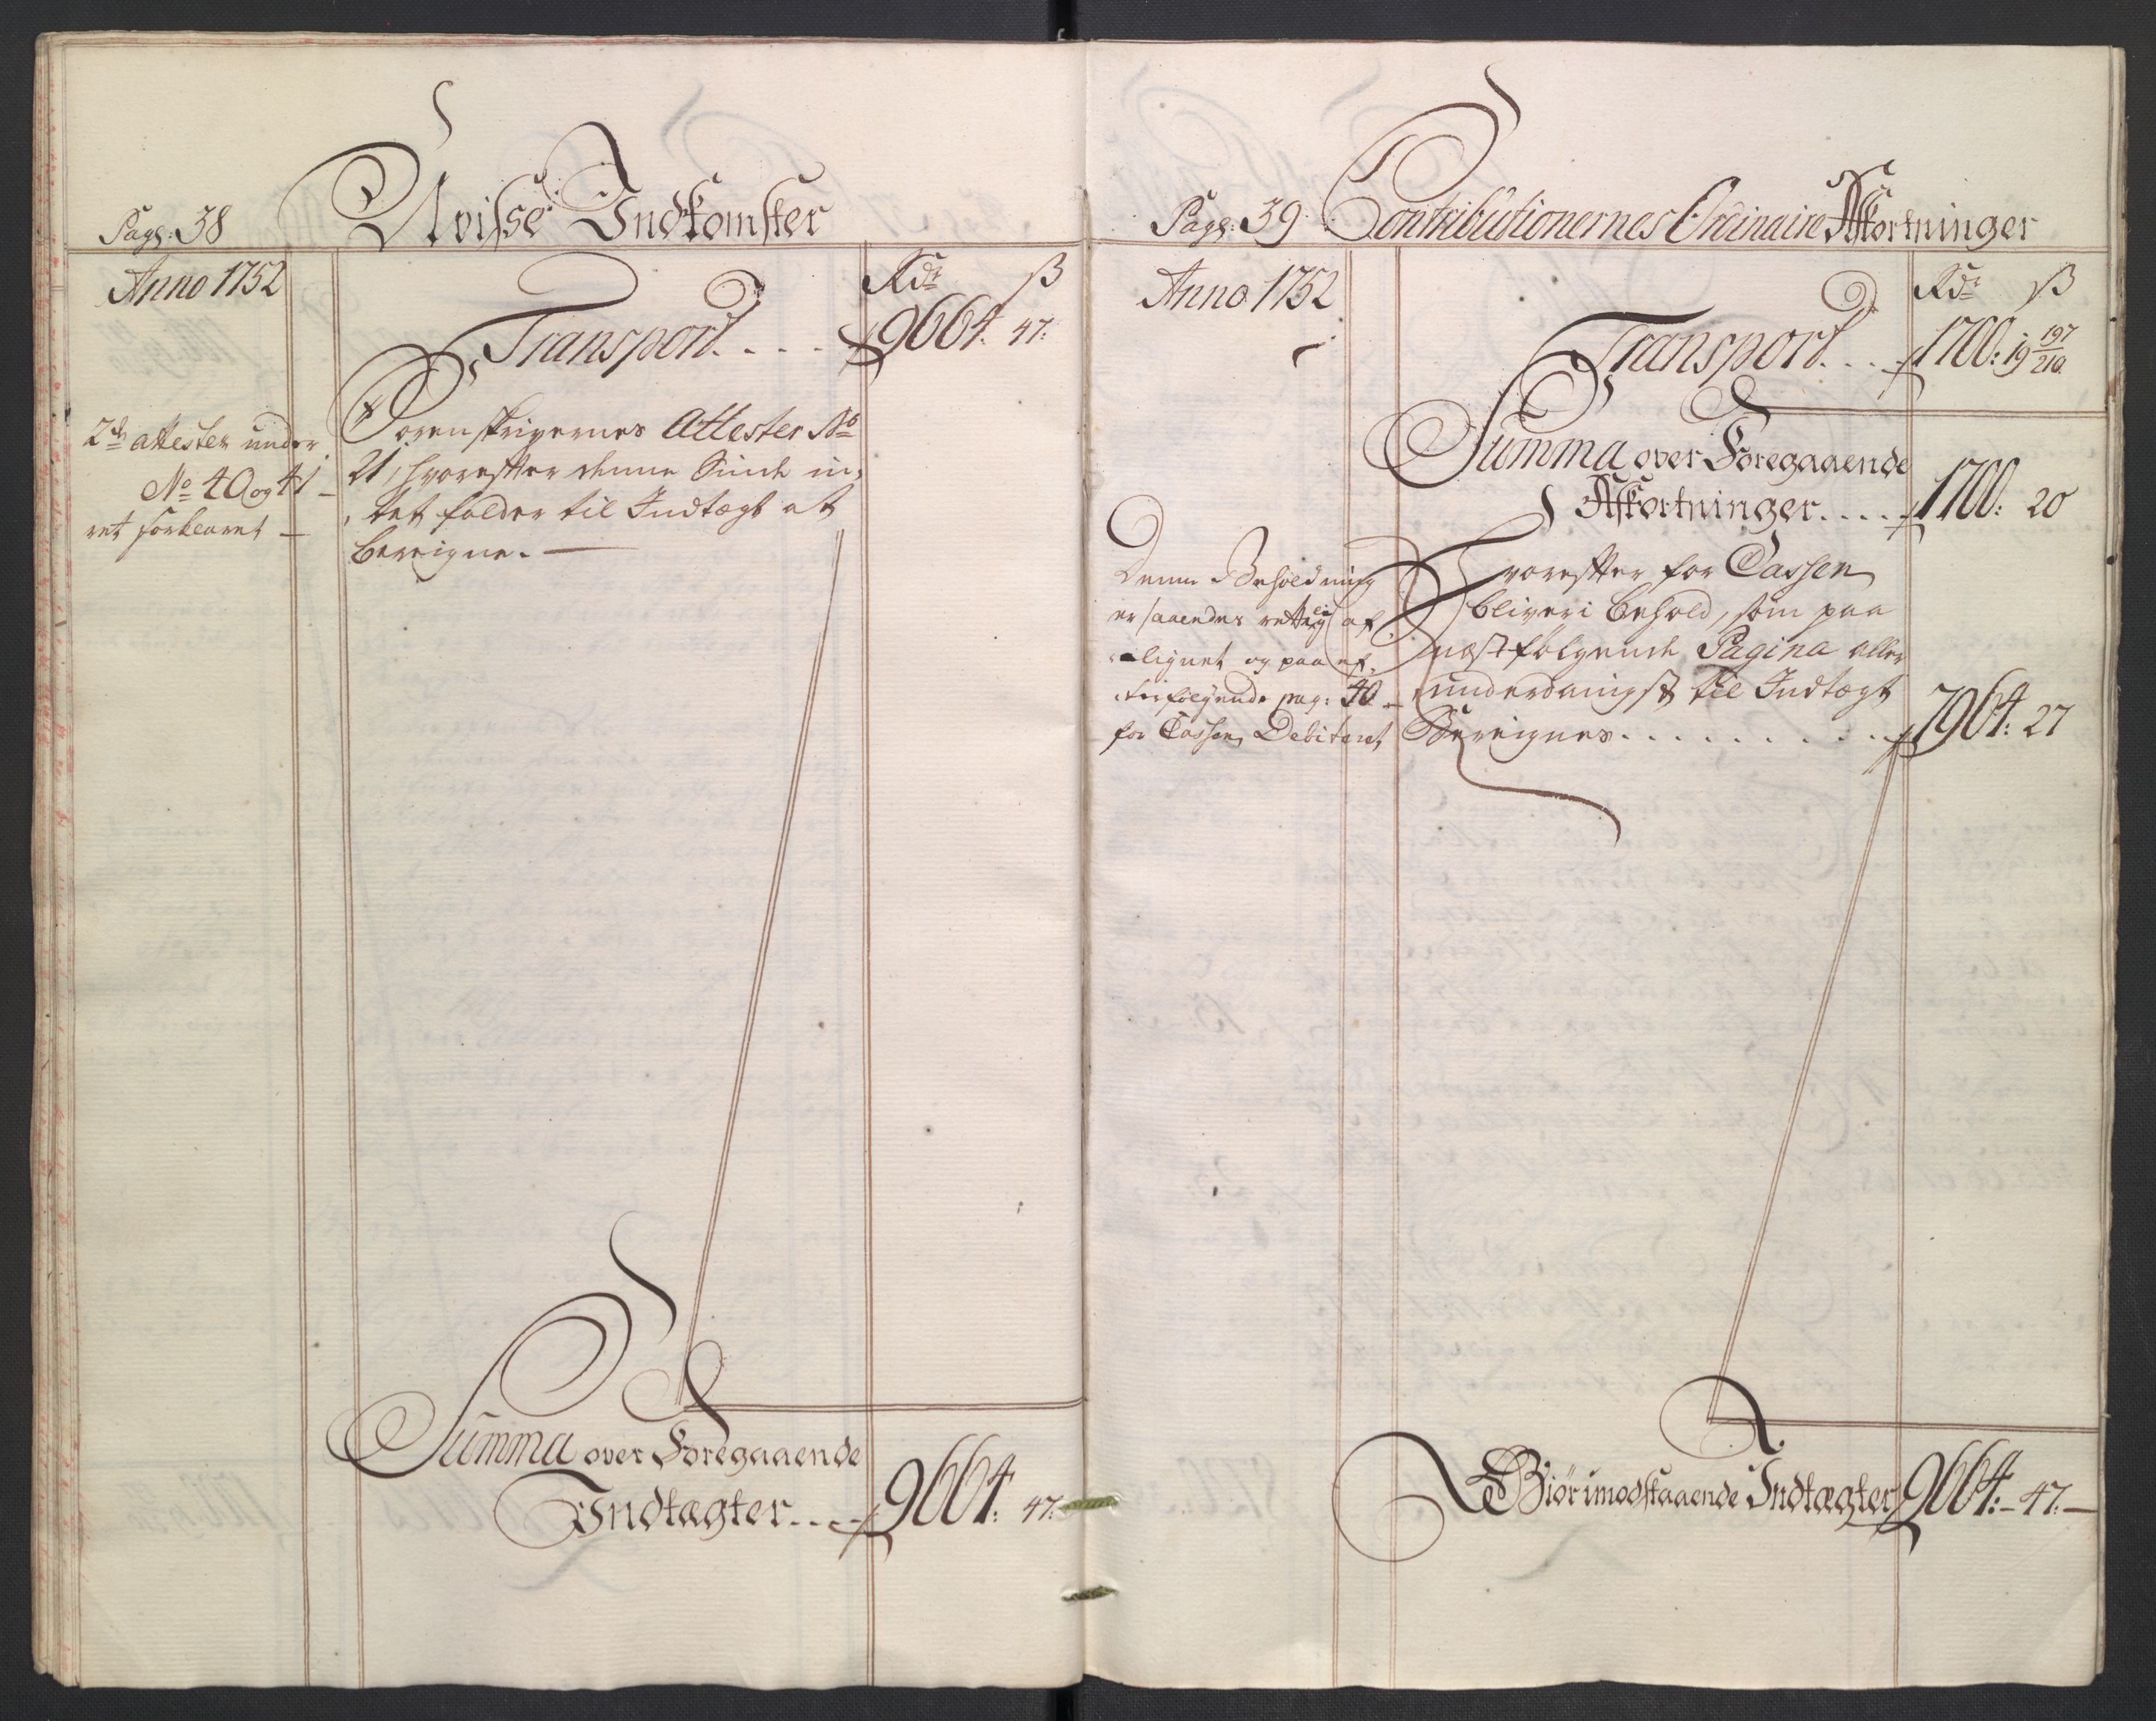 Pag: 38
Uvisse Indkomster
Anno 1752
Rdr ß
Transport . . . . 9664. 47:
2de attester under
No 40 og 41
ret forklaret —
Sorenskrivernes Attester No
21, hvorefter denne Sinde in-
tet falder til Indtægt at
bereigne. —
Summa over Foregaaende
Indtægter . . . . 9664: 47:
Pag: 39
Contributionernes Ordinaire Afkortninger
Anno 1752
Rdr ß
Transport . . . 1700: 19 197/210
Summa over Foregaaende
Afkortninger . . . . . 1700: 20
Denne Beholdning
er saaledes rettelig af
lignet og paa ef-
terfølgende pag: 40
for Cassen Debiteret
Hvorefter for Cassen
bliver i behold, som paa
næstfølgende Pagina aller
underdanigst til Indtægt
Bereignes . . . . . . . . . 7964: 27
Giør imodstaaende Indtægter 9664: — 47: —